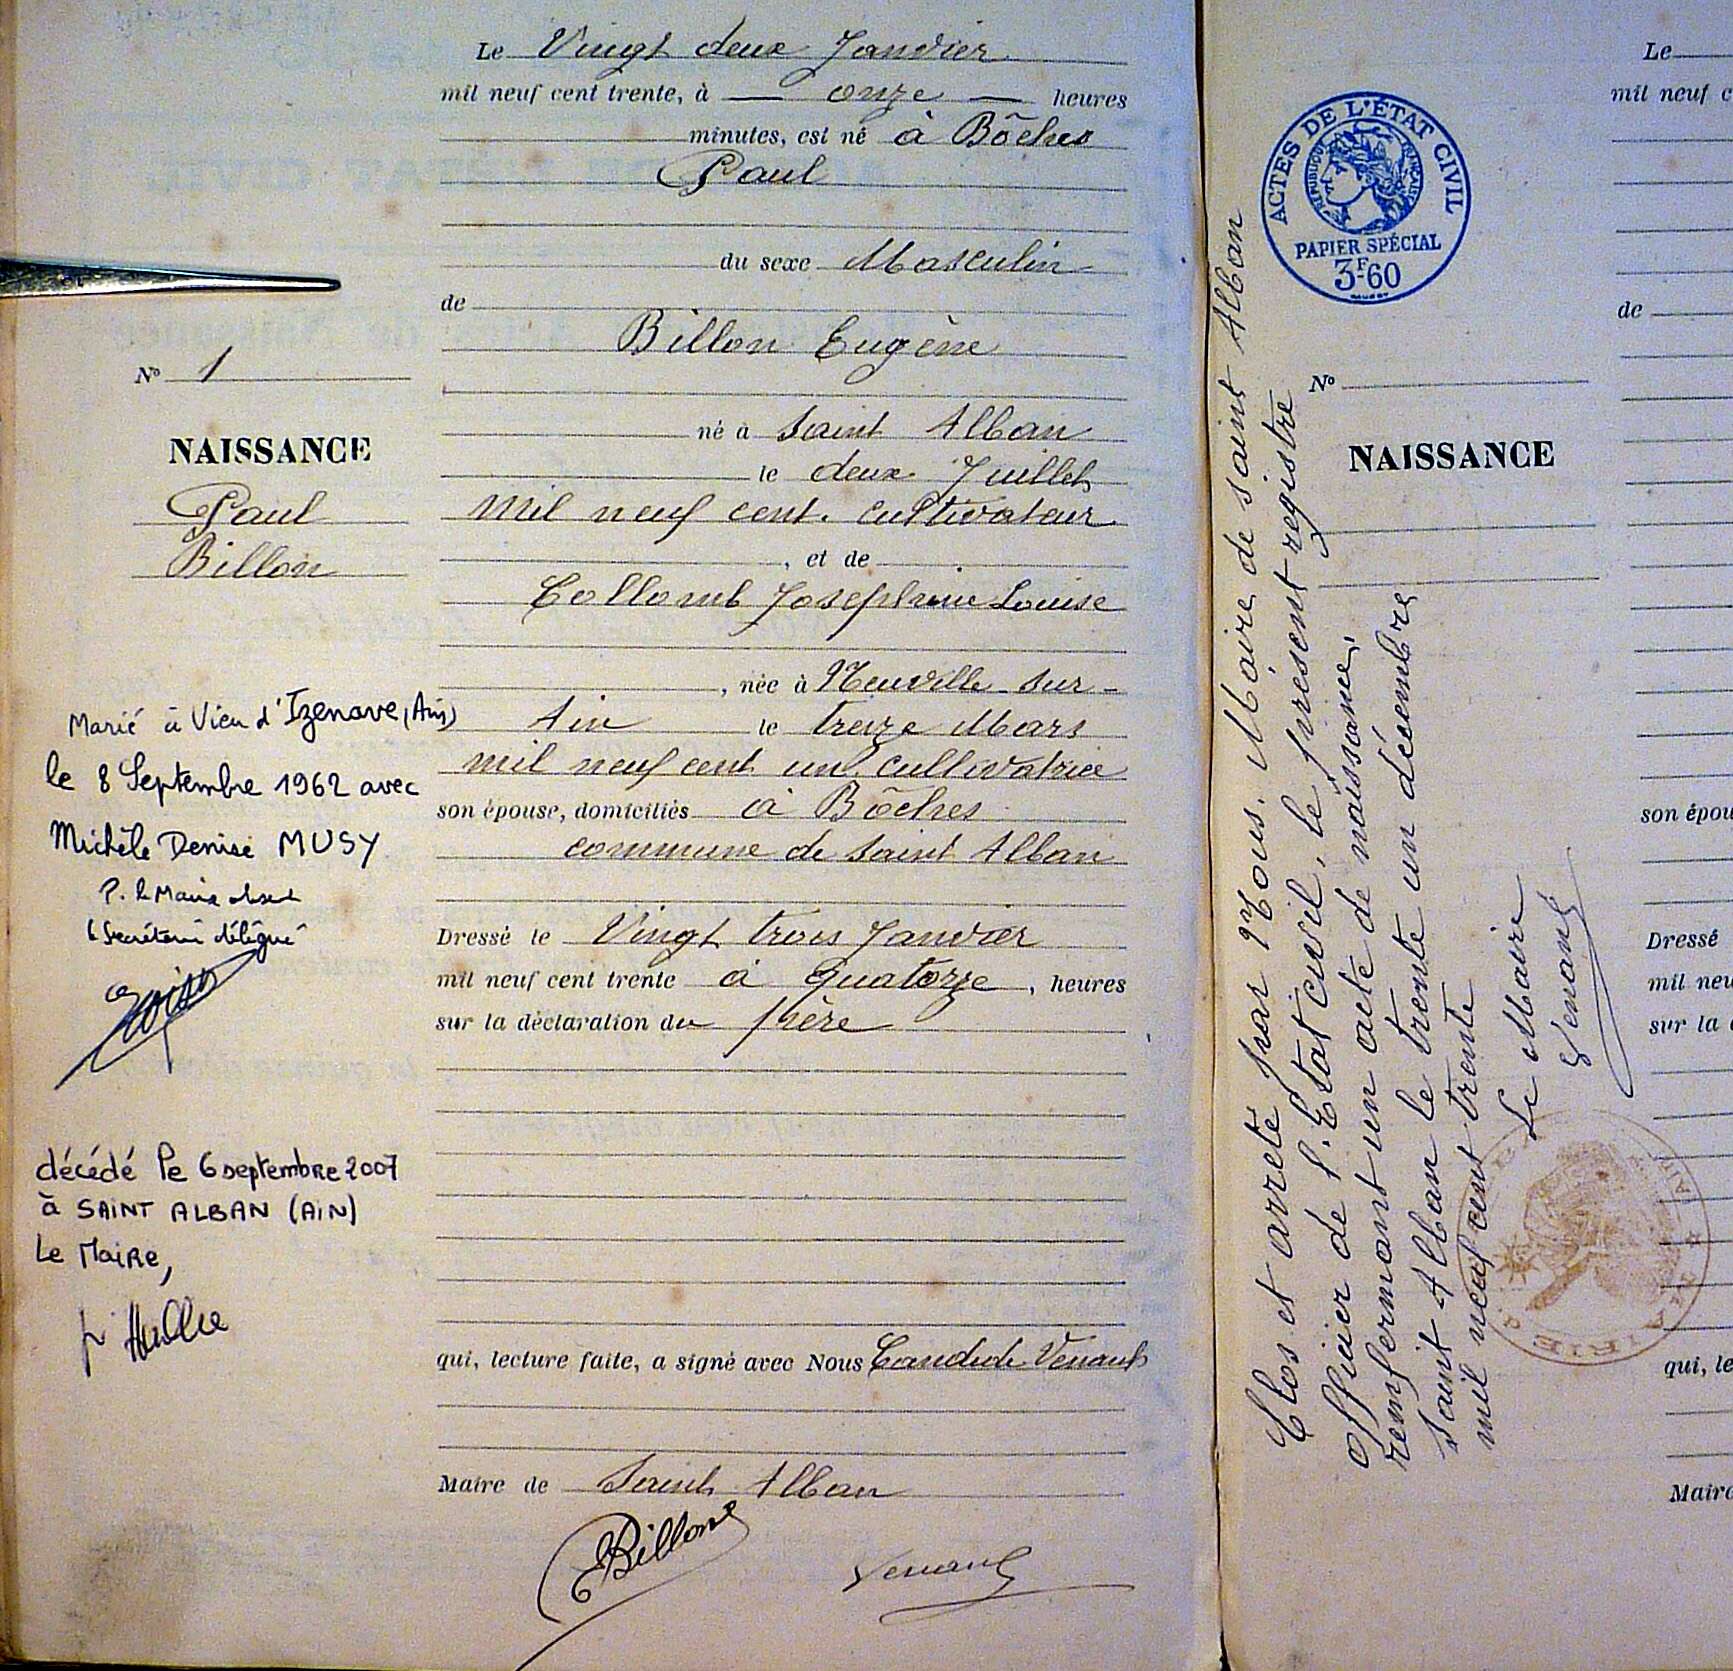 Le Vingt deux Janvier
mil neuf cent trente, à — onze — heures
minutes, est né à Bôches
Paul
du sexe Masculin
de
Billon Eugène
né à Saint Alban
le deux Juillet
mil neuf cent. cultivateur
, et de
Collomb Josephine Louise
, née à Neuville sur-
Ain le treize Mars
mil neuf cent un. cultivatrice
son épouse, domiciliés à Bôches
commune de Saint Alban
Dressé le Vingt trois Janvier
mil neuf cent trente à quatorze, heures
sur la déclaration du père
qui, lecture faite, a signé avec Nous Candide Venard
Maire de Saint Alban
EBillon
Venard
No 1
NAISSANCE
Paul
Billon
Marié à Vieu d'Izenave (Ain)
le 8 Septembre 1962 avec
Michèle Denise MUSY
P. le Maire absent
le Secrétaire délégué
décédé le 6 septembre 2007
à SAINT ALBAN (AIN)
Le Maire,
ACTES DE L'ÉTAT CIVIL
RÉPUBLIQUE FRANÇAISE
PAPIER SPÉCIAL
3F.60
No
NAISSANCE
Clos et arrêté par Nous. Maire de saint Alban
officier de l'Etat civil, le présent registre
renfermant un acte de naissance,
Saint Alban le trente un décembre
mil neuf cent trente
Le Maire
Venard
MAIRIE
AIN
Le
mil neuf c
de
son épou
Dressé
mil neu
sur la d
qui, le
Maire